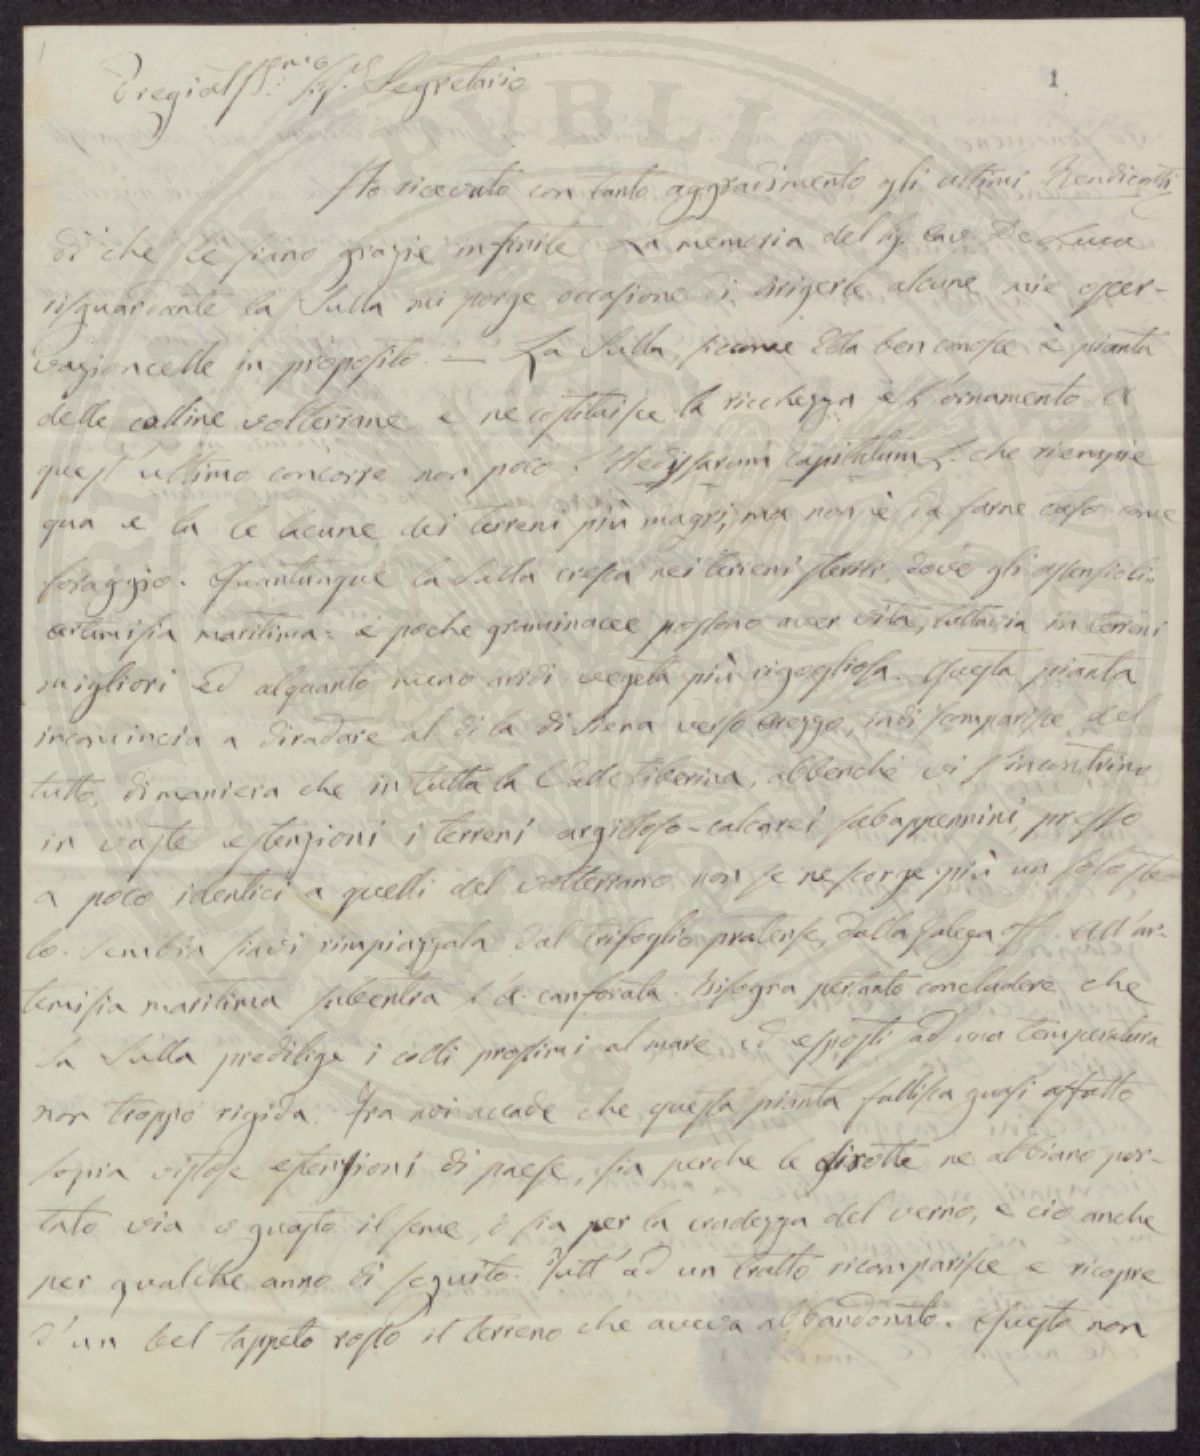 1
Pregiatss.mo Sig. Segretario
Ho ricevuto con tanto aggradimento gli ultimi Rendiconti
di che le siano grazie infinite. La memoria del Sig. Cav. De Luca
risguardante la Sulla mi porge occasione di dirigerle alcune mie osser-
vazioncelle in proposito — La Sulla, siccome Ella ben conosce è pianta
delle colline volterrane e ne costituisce la ricchezza e l'ornamento a
quest'ultimo concorre non poco l'Hedysarum capitatum L. che riempie
qua e la le lacune dei terreni più magri, ma non è da farne caso come
foraggio. Quantunque la Sulla cresca nei terreni sterili, dove gli
artemisia maritima e poche graminacee possono aver vita, tuttavia in terreni
migliori ed alquanto meno aridi vegeta più rigogliosa. Questa pianta
incomincia a diradare al di la di Siena verso Arezzo, indi scomparisce del
tutto, di maniera che in tutta la Valle tiberina, abbenchè vi s'incontrino
in vaste estenzioni i terreni argilloso-calcarei subappennini, presso
a poco identici a quelli del volterrano non se ne scorge più un solo ste-
lo. Sembra siavi rimpiazzata dal trifoglio pratense, dalla galega off. All'ar-
temisia maritima subentra l'A. canforata. Bisogna pertanto concludere che
la Sulla predilige i colli prossimi al mare ed esposti ad una temperatura
non troppo rigida. Fra noi accade che questa pianta fallisca quasi affatto
sopra vistose estensioni di paese, sia perche le dirotte ne abbiano por-
tato via o guasto il seme, o sia per la crudezza del verno, e ciò anche
per qualche anno di seguito. Tutt'ad un tratto ricomparisce e ricopre
d'un bel tappeto rosso il terreno che aveva abbandonato. Questo non